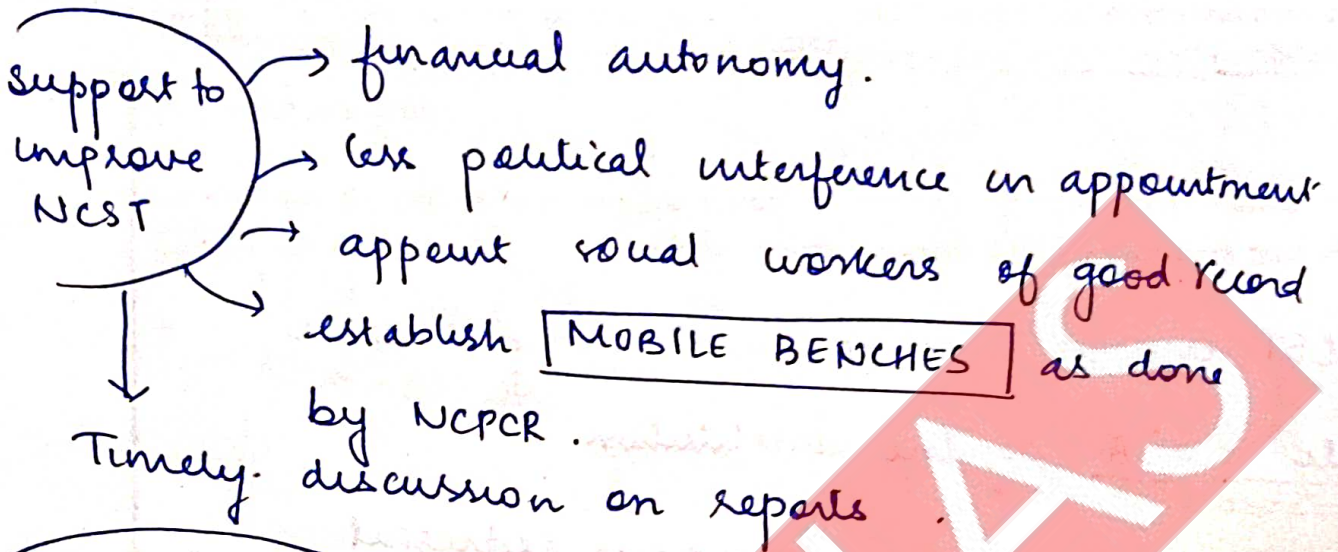 support to
improve
NCST
→ financial autonomy.
→ less political interference in appointment
→ appoint social workers of good record
establish MOBILE BENCHES as done
by NCPCR.
Timely discussion on reports.
IAS